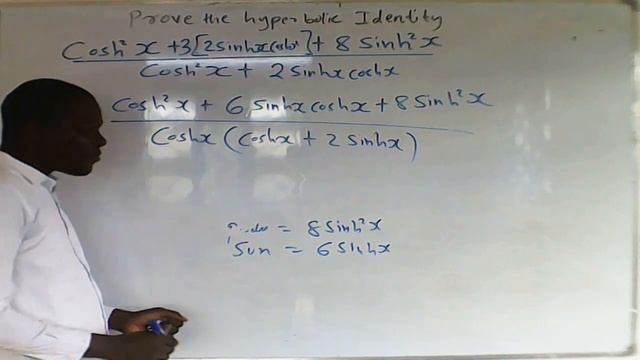 Prove the hyperbolic Identity
Cosh²x + 3[2sinhxcoshx] + 8sinh²x
Cosh²x + 2sinhxcoshx
Cosh²x + 6sinhxcoshx + 8sinh²x
Coshx(coshx + 2sinhx)
= 8sinh²x
Sum = 6sinhx